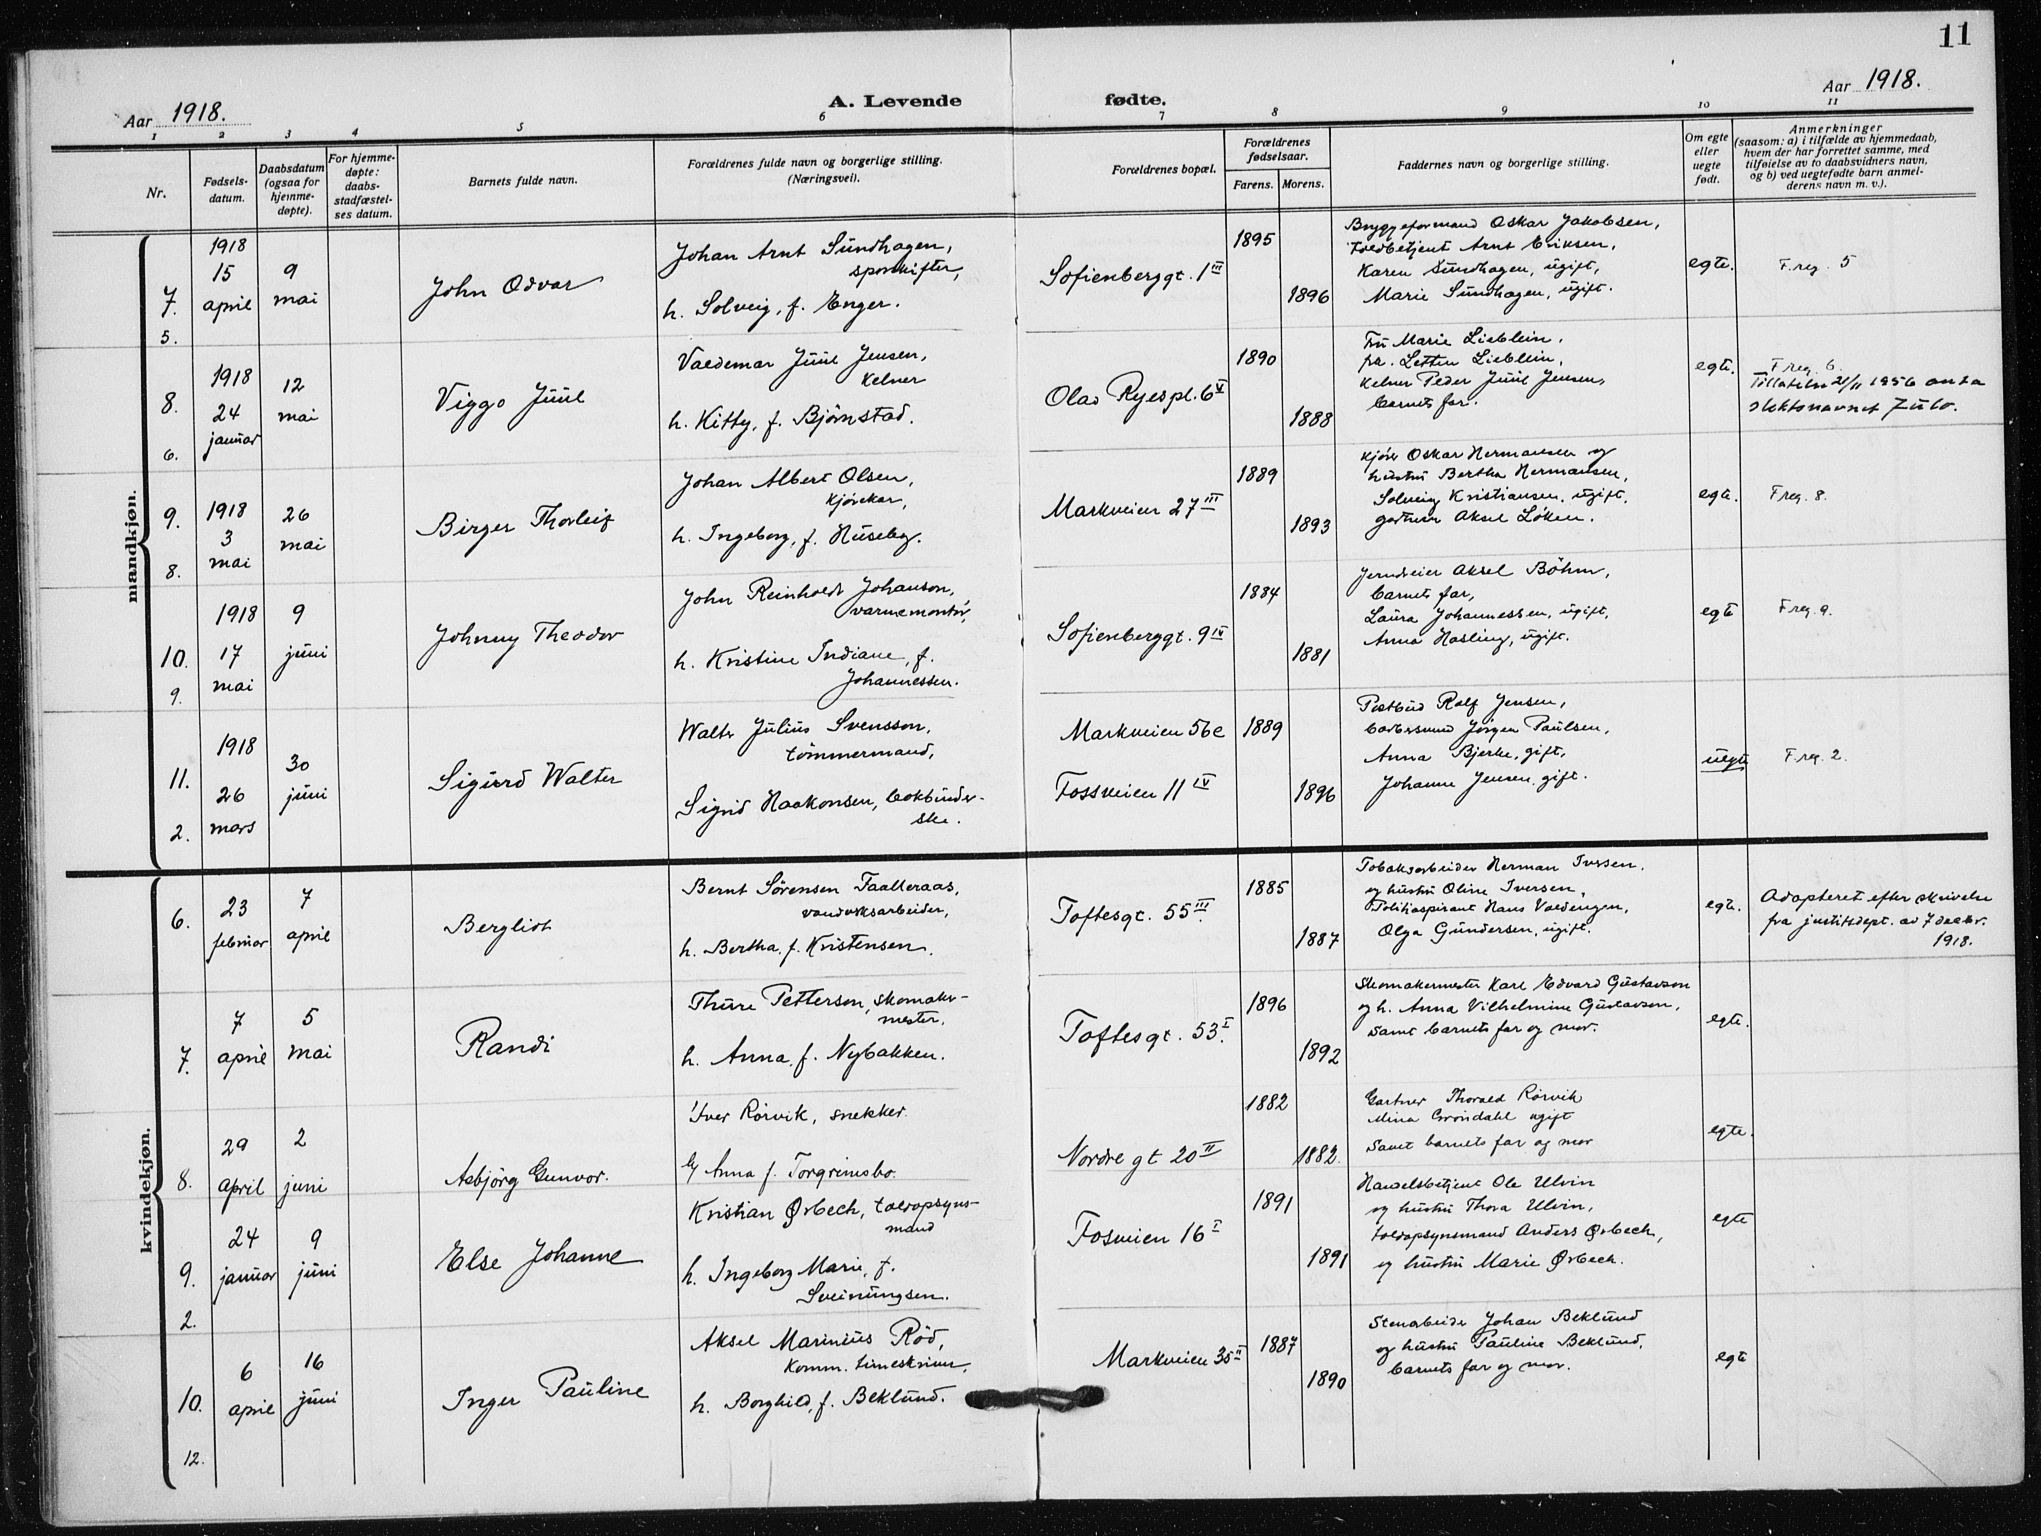 11
Aar 1918.
A. Levende fødte.
Aar 1918.
1 2 3 4 5 6 7 8 9 10 11
Nr.
Fødsels-
datum.
Daabsdatum
(ogsaa for
hjemme-
døpte).
For hjemme-
døpte:
daabs-
stadfæstel-
ses datum.
Barnets fulde navn.
Forældrenes fulde navn og borgerlige stilling.
(Næringsvei).
Forældrenes bopæl.
Forældrenes
fødselsaar.
Farens. Morens.
Faddernes navn og borgerlige stilling.
Om egte
eller
uegte
født.
Anmerkninger
(saasom: a) i tilfælde av hjemmedaab,
hvem der har forrettet samme, med
tilføielse av to daabsvidners navn,
og b) ved uegtefødte barn anmel-
derens navn m. v.).
mandkjøn.
7.
5.
1918
15
april
9
mai
John Odvar
Johan Arnt Sundhagen,
sporskifter,
h. Solveig, f. Enger.
Sofienberggt. 1 III
1895
1896
Bryggeformand Oskar Jakobsen,
Toldbetjent Arnt Eriksen,
Karen Sundhagen, ugift,
Marie Sundhagen, ugift.
egte.
F.reg. 5
8.
6.
1918
24
januar
12
mai
Viggo Juul
Valdemar Juul Jensen,
kelner
h. Kitty, f. Bjørnstad.
Olav Ryespl. 6 V
1890
1888
Fru Marie Lieblein,
frk. Letten Lieblein,
Kelner Peder Juul Jensen,
barnets far.
egte.
F.reg. 6.
Tillatelse 21/11 1956 on ta
slektsnavnet Zulo.
9.
8.
1918
3
mai
26
mai
Birger Thorleif
Johan Albert Olsen,
kjørekar,
h. Ingeborg, f. Huseby.
Markveien 27 III
1889
1893
Kjører Oskar Hermansen og
hustru Bertha Hermansen,
Solveig Kristiansen, ugift,
gartner Aksel Løken.
egte.
F.reg. 8.
10.
9.
1918
17
mai
9
juni
Johnny Theodor
John Reinholdt Johanson,
varmemontør,
h. Kristine Indiane, f.
Johannessen.
Sofienberggt. 9 IV
1884
1881
Jerndreier Aksel Böhm,
barnets far,
Laura Johannessen, ugift,
Anna Hasling, ugift.
egte
F.reg. 9.
11.
2.
1918
26
mars
30
juni
Sigurd Walter
Walter Julius Svensson,
tømmermand,
Sigrid Haakonsen, bokbinder-
ske.
Markveien 56c
Fossveien 11 IV
1889
1896
Postbud Rolf Jensen,
Jørgen Paulsen,
Anna Bjerke, gift,
Johanne Jensen, gift.
uegte
F.reg. 2.
kvindekjøn.
6.
23
februar
7
april
Bergliot
Bernt Sørensen Taalleraas,
vandverksarbeider,
h. Bertha, f. Kristensen.
Toftesgt. 55 III
1885
1887
Tobaksarbeider Herman Iversen,
og hustru Oline Iversen,
Politiaspirant Hans Valdengen,
Olga Gundersen, ugift.
egte.
Adopteret efter skrivelse
fra justitsdept. av 7 decbr.
1918.
7.
7
april
5
mai
Randi
Thure Petterson, skomaker-
mester,
h. Anna, f. Nybakken.
Toftesgt. 53 I.
1896
1892
Skomakermester Karl Edvard Gustavson
og h. Anna Vilhelmine Gustavson,
samt barnets far og mor.
egte.
8.
29
april
2
juni
Asbjörg Gunvor.
Iver Rörvik, snekker.
h/ Anna f. Torgrimsbo
Nordre gt 20 II
1882
1882.
Gartner Thorald Rörvik
Mina Gröndahl ugift
Samt barnets far og mor
egte.
9.
2.
24
januar
9
juni
Else Johanne
Kristian Ørbech, toldopsyns-
mand
h. Ingeborg Marie, f.
Sveinungsen.
Fosveien 16 I
1891
1891
Handelsbetjent Ole Ulvin
og hustru Thora Ulvin,
toldopsynsmand Anders Ørbech,
og hustru Marie Ørbech.
egte
10.
12.
6
april
16
juni
Inger Pauline
Aksel Marinius Röd,
komm. timeskriver,
h. Borghild, f. Beklund.
Markveien 35 II
1887
1890
Stenarbeider Johan Beklund
og hustru Pauline Beklund,
barnets far og mor.
egte